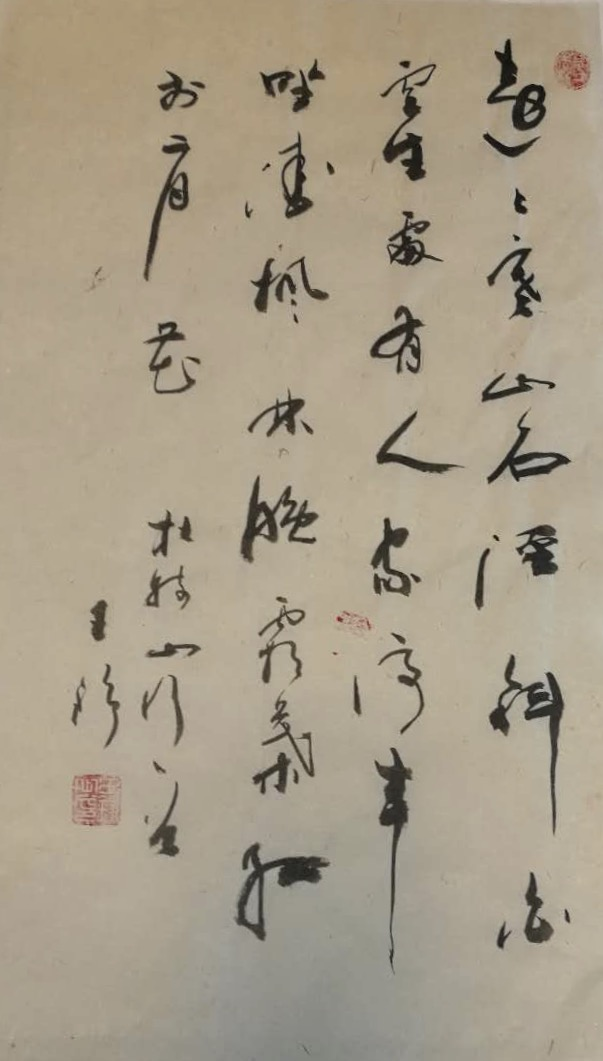 遠上寒山石徑斜白
雲生處有人家停車
坐愛楓林晚霜葉紅
於二月花 杜牧山行
王